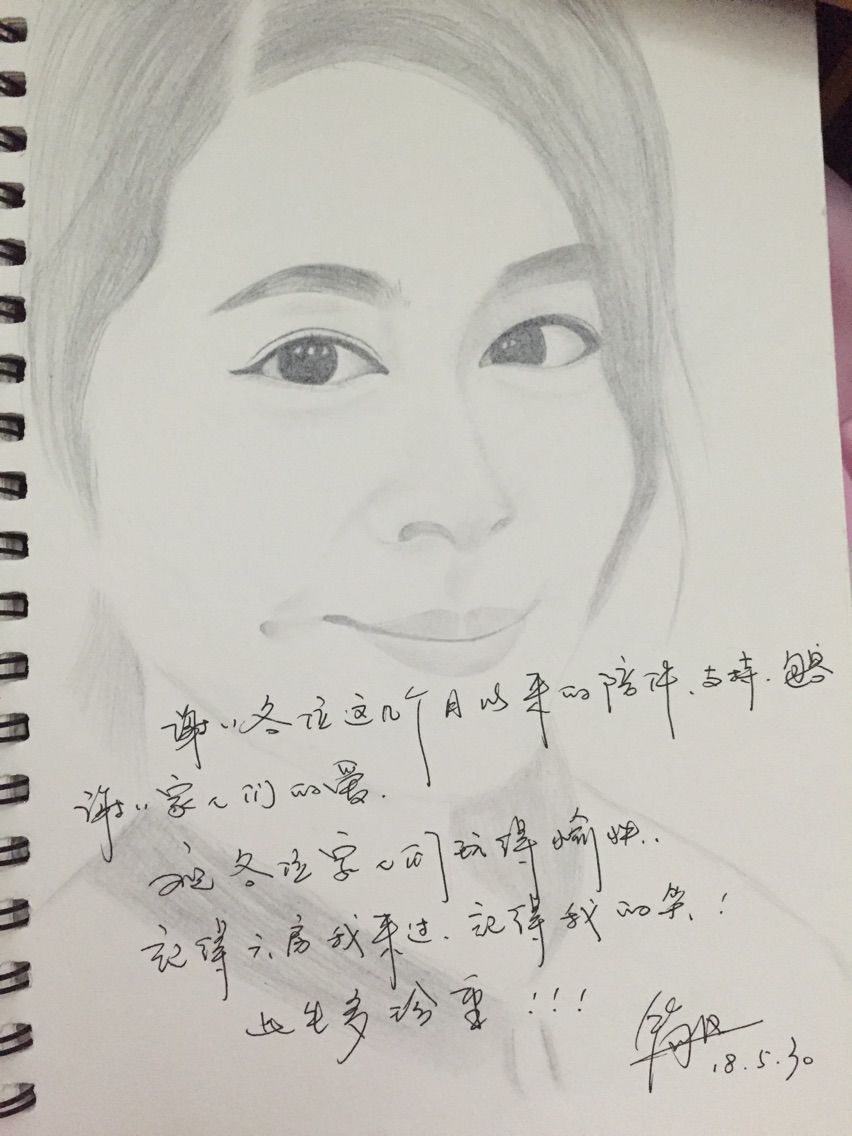 谢谢各位这几个月以来的陪伴、支持、包容
谢谢家人们的爱.
祝各位家人们玩得愉快..
记得六房我来过.记得我的笑.!
此生多珍重!!!
18.5.30